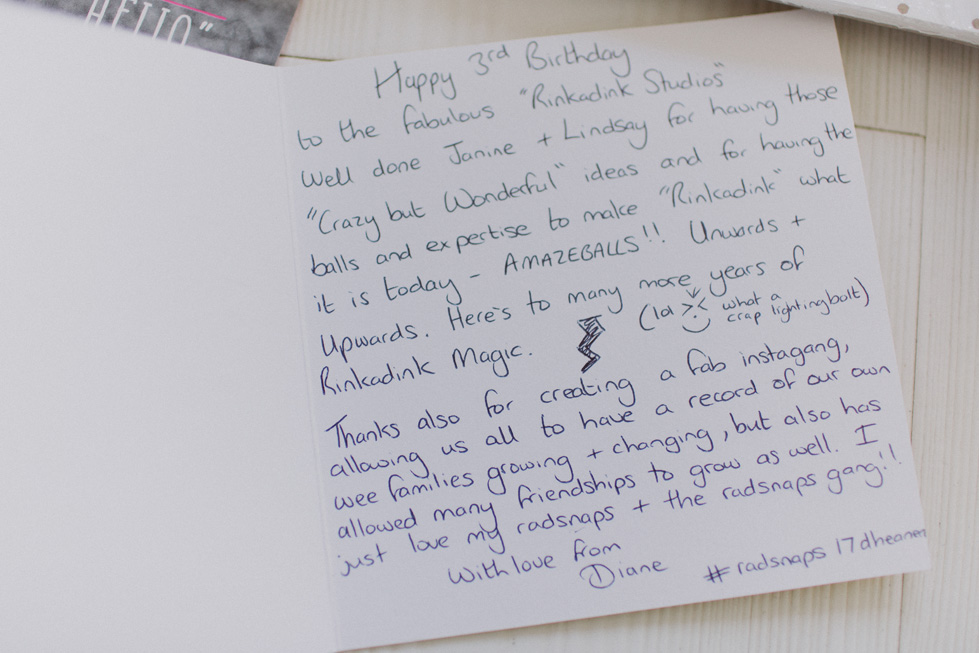 HELLO"
Happy 3rd Birthday
to the fabulous "Rinkadink Studios"
Well done Janine + Lindsay for having those
"Crazy but Wonderful" ideas and for having the
balls and expertise to make "Rinkadink" what
it is today - AMAZEBALLS!! Onwards +
Upwards. Here's to many more years of
Rinkadink Magic.
(lol what a
crap lightingbolt)
Thanks also for creating a fab instagang,
allowing us all to have a record of our own
wee families growing + changing, but also has
allowed many friendships to grow as well. I
just love my radsnaps + the radsnaps gang!!
With love from
Diane
#radsnaps17dheanen